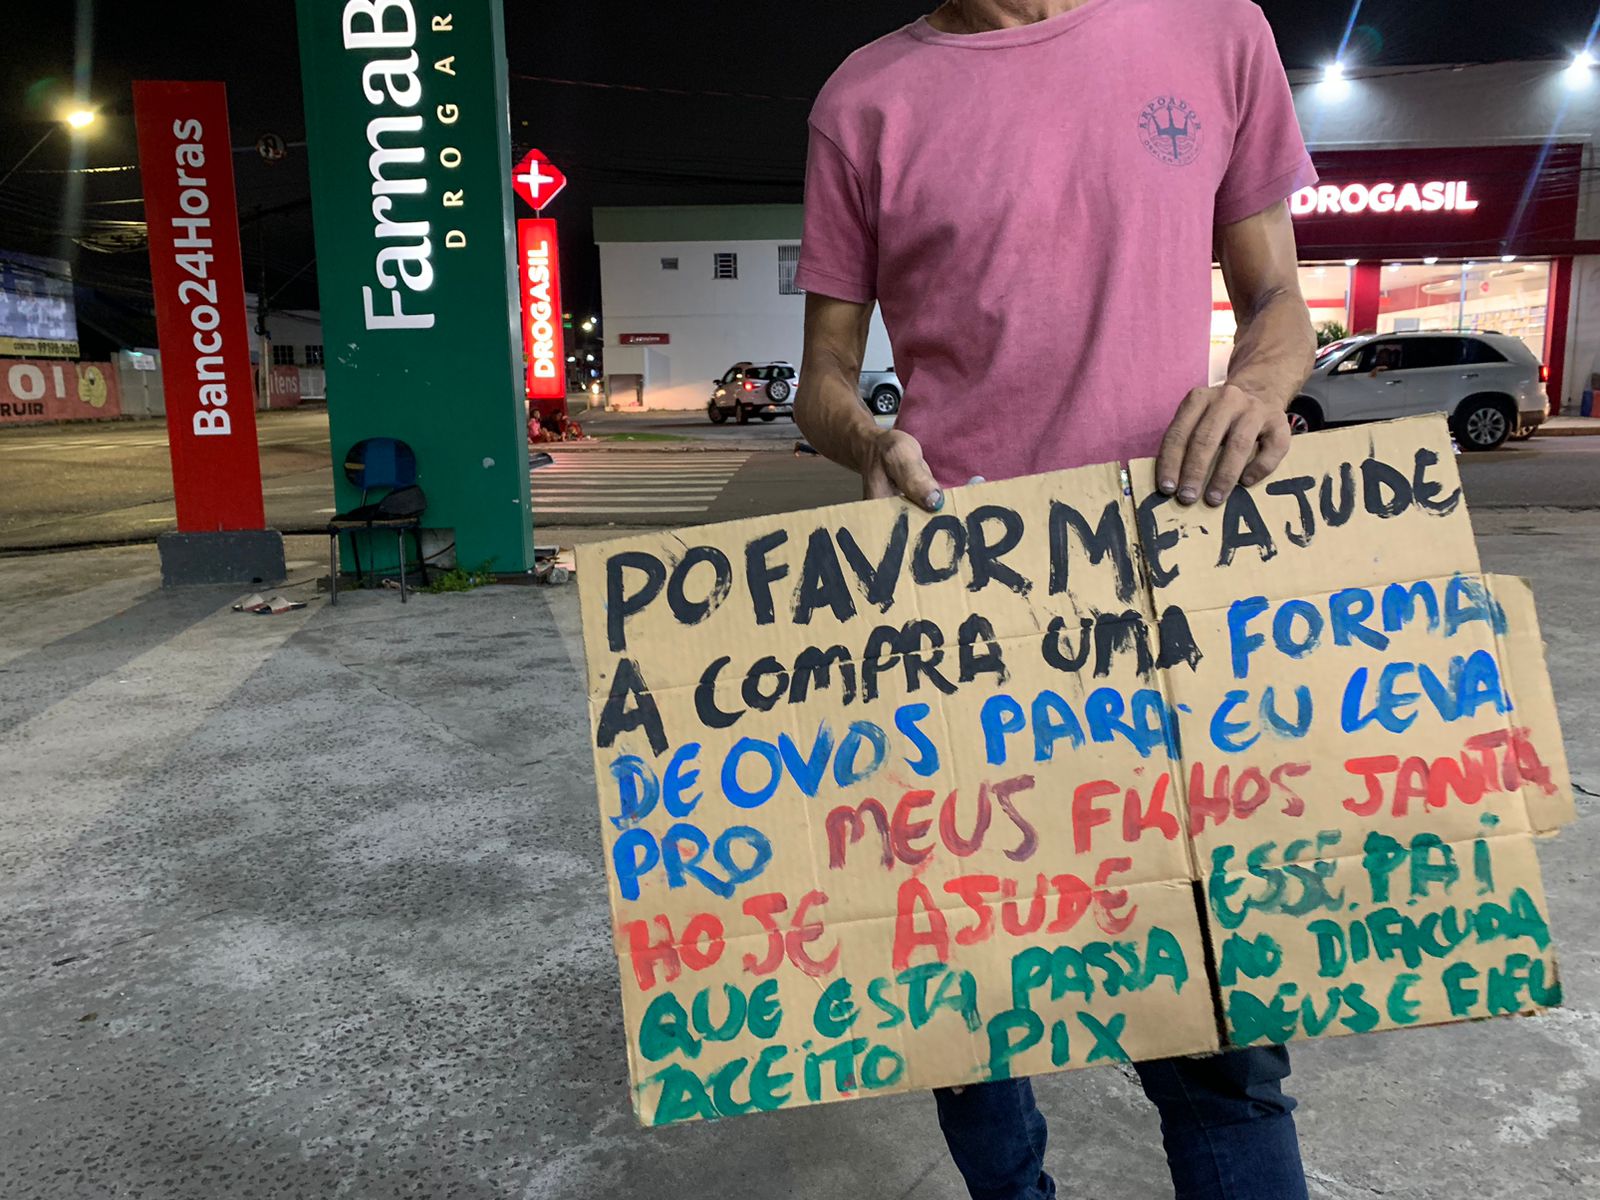 Banco24Horas
FarmaB
DROGAR
DROGASIL
DROGASIL
ARPOADOR
CONTATO: 99198-3603
RUIR
PO FAVOR ME AJUDE
A COMPRA UMA FORMA
DE OVOS PARA EU LEVA
PRO MEUS FILHOS JANTA
HOJE AJUDE ESSE PAI
QUE ESTA PASSA NO DIFICUDA
ACEITO PIX DEUS E FIEL